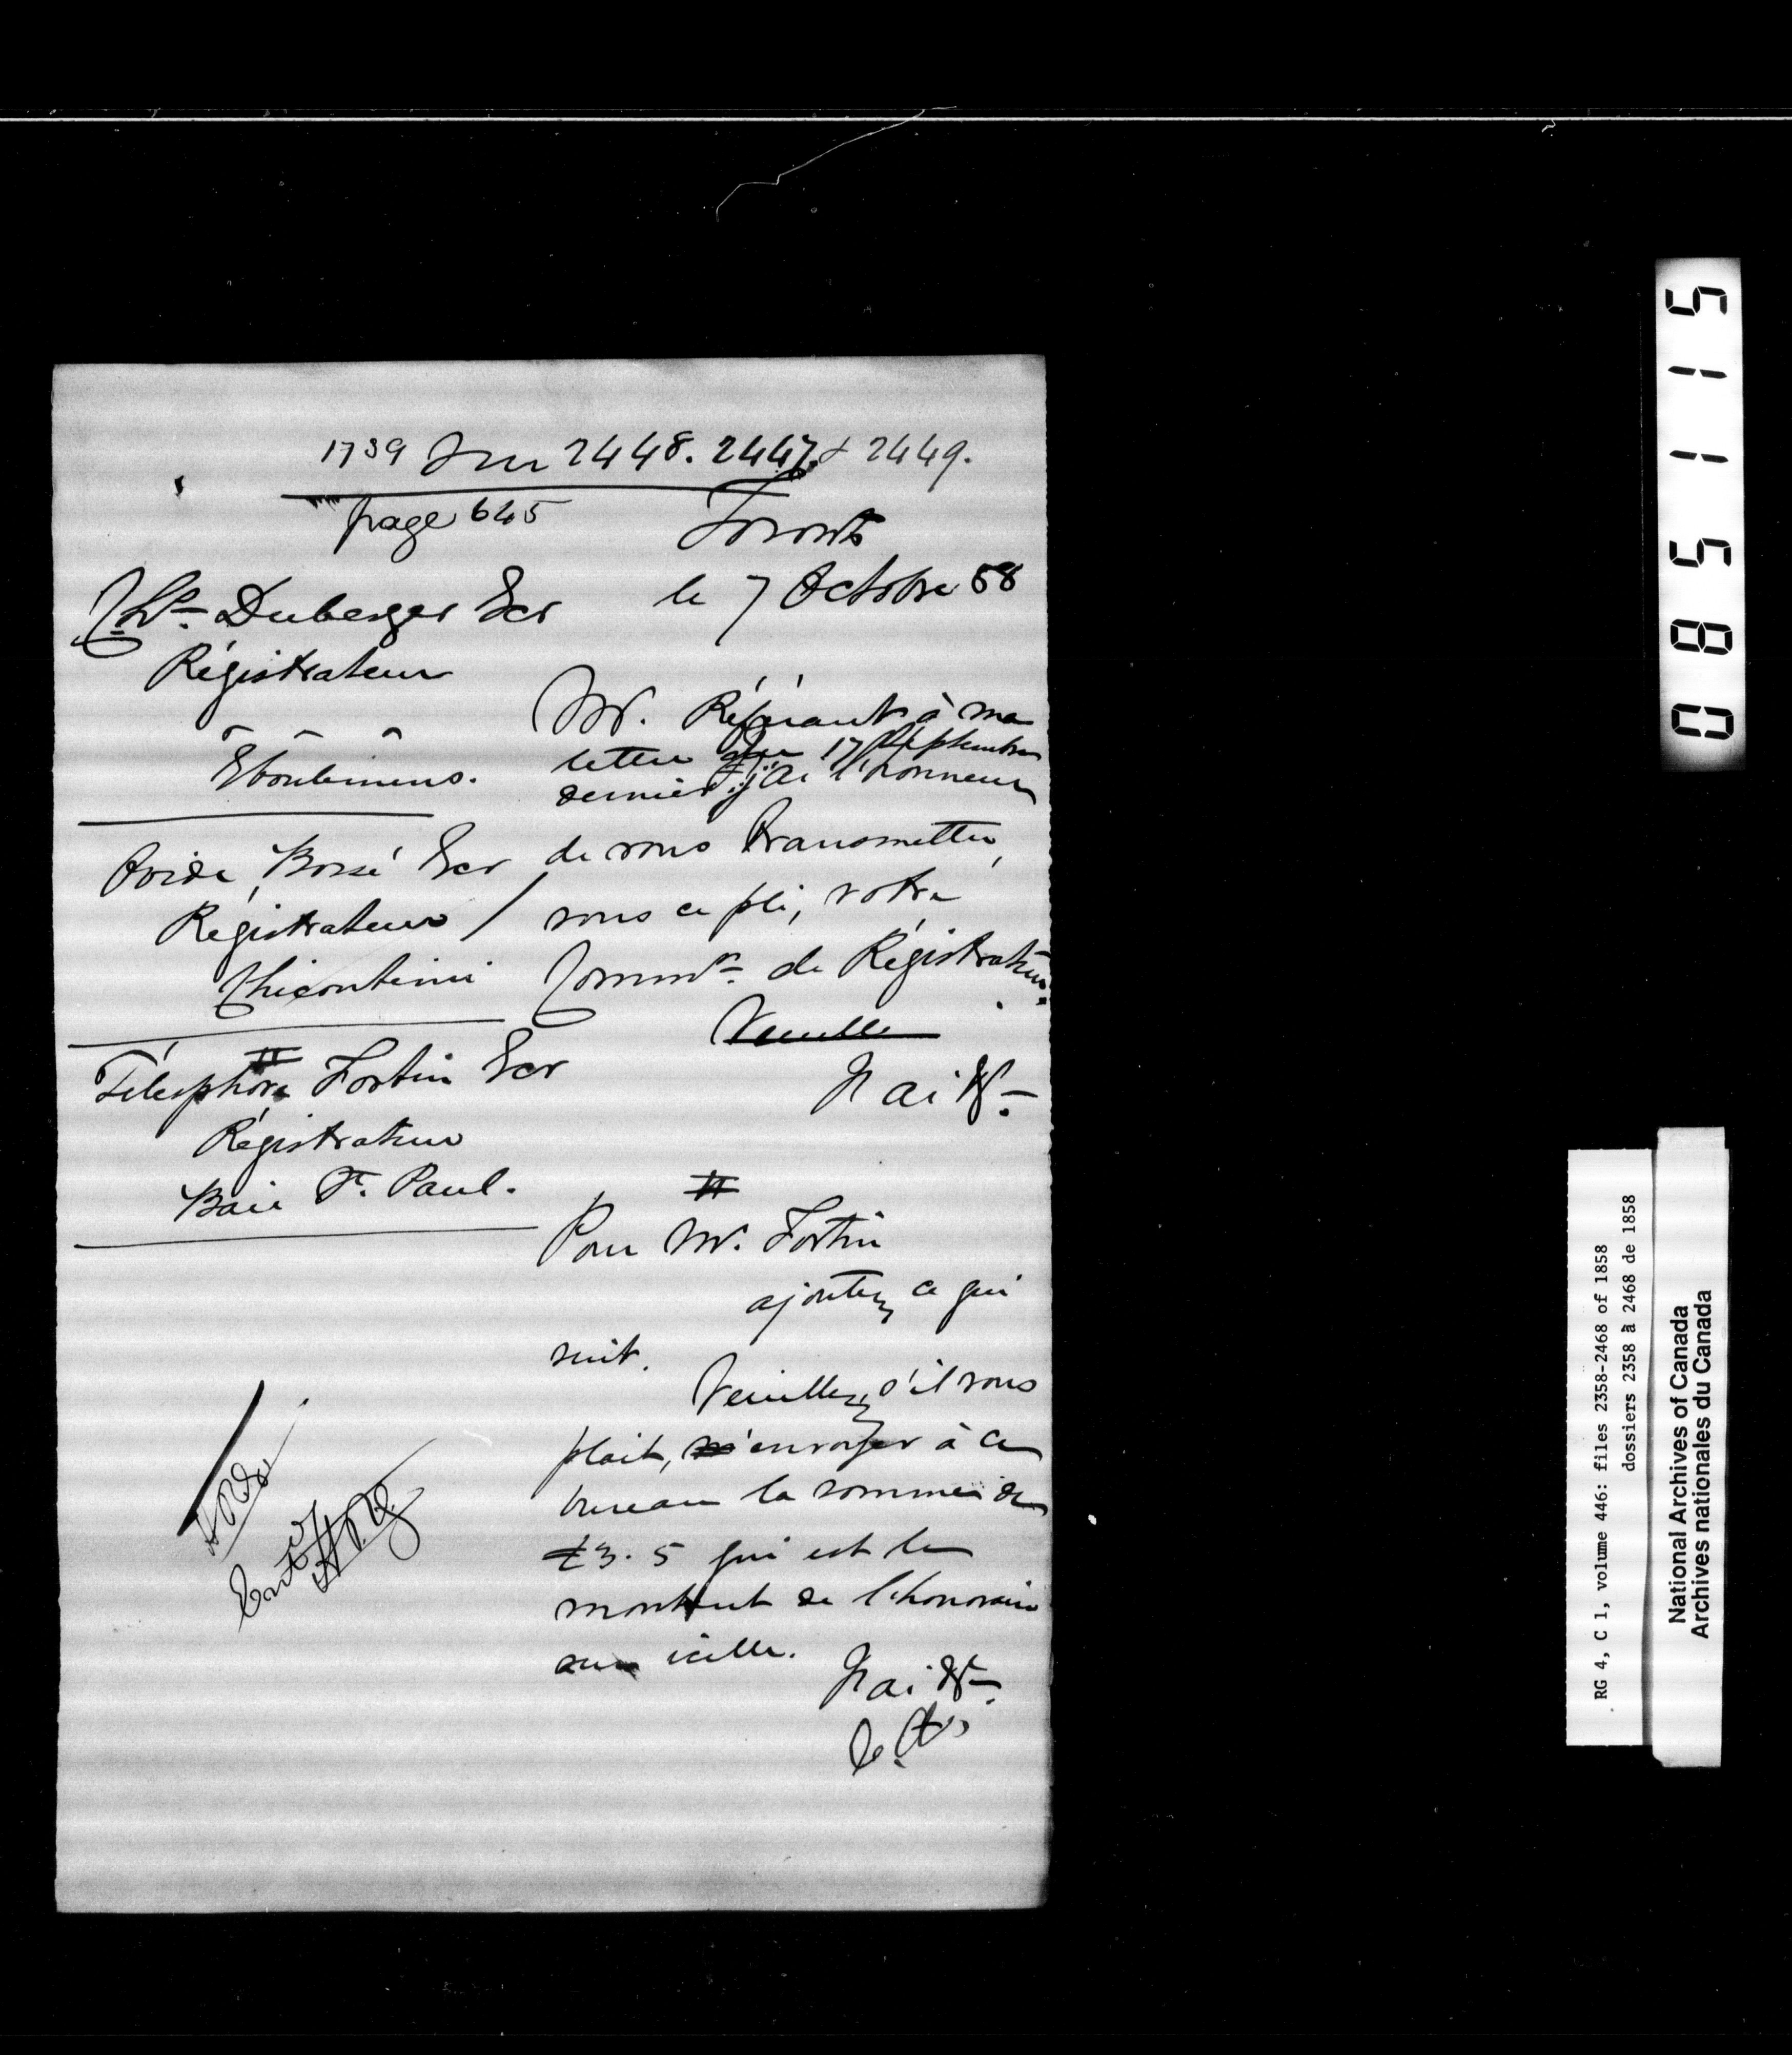 1739 Sur 2448. 2447. & 2449.
page 645
Toronto
le 7 Octobre 58
Chs. Duberger Ecr
Régistrateur
Eboulemens.
Ovide Bossé Ecr
Régistrateur
Chicoutimi
Télesphore Fortin Ecr
Régistrateur
Baie St. Paul.
Mr. Référant à ma
lettre du 17 Septembre
dernier j'ai l'honneur
de vous transmettre,
sous ce pli, votre
Commn. de Régistrateur.
Veuille
J'ai &c.
Pour Mr. Fortin
ajoutez ce qui
suit.
Veuillez, s'il vous
plait, envoyer à ce
bureau la somme de
£3.5 qui est le
montant de l'honoraire
sur icelle.
J'ai &c.
Entd
085115
RG 4, C 1, volume 446: files 2358-2468 of 1858
dossiers 2358 à 2468 de 1858
National Archives of Canada
Archives nationales du Canada